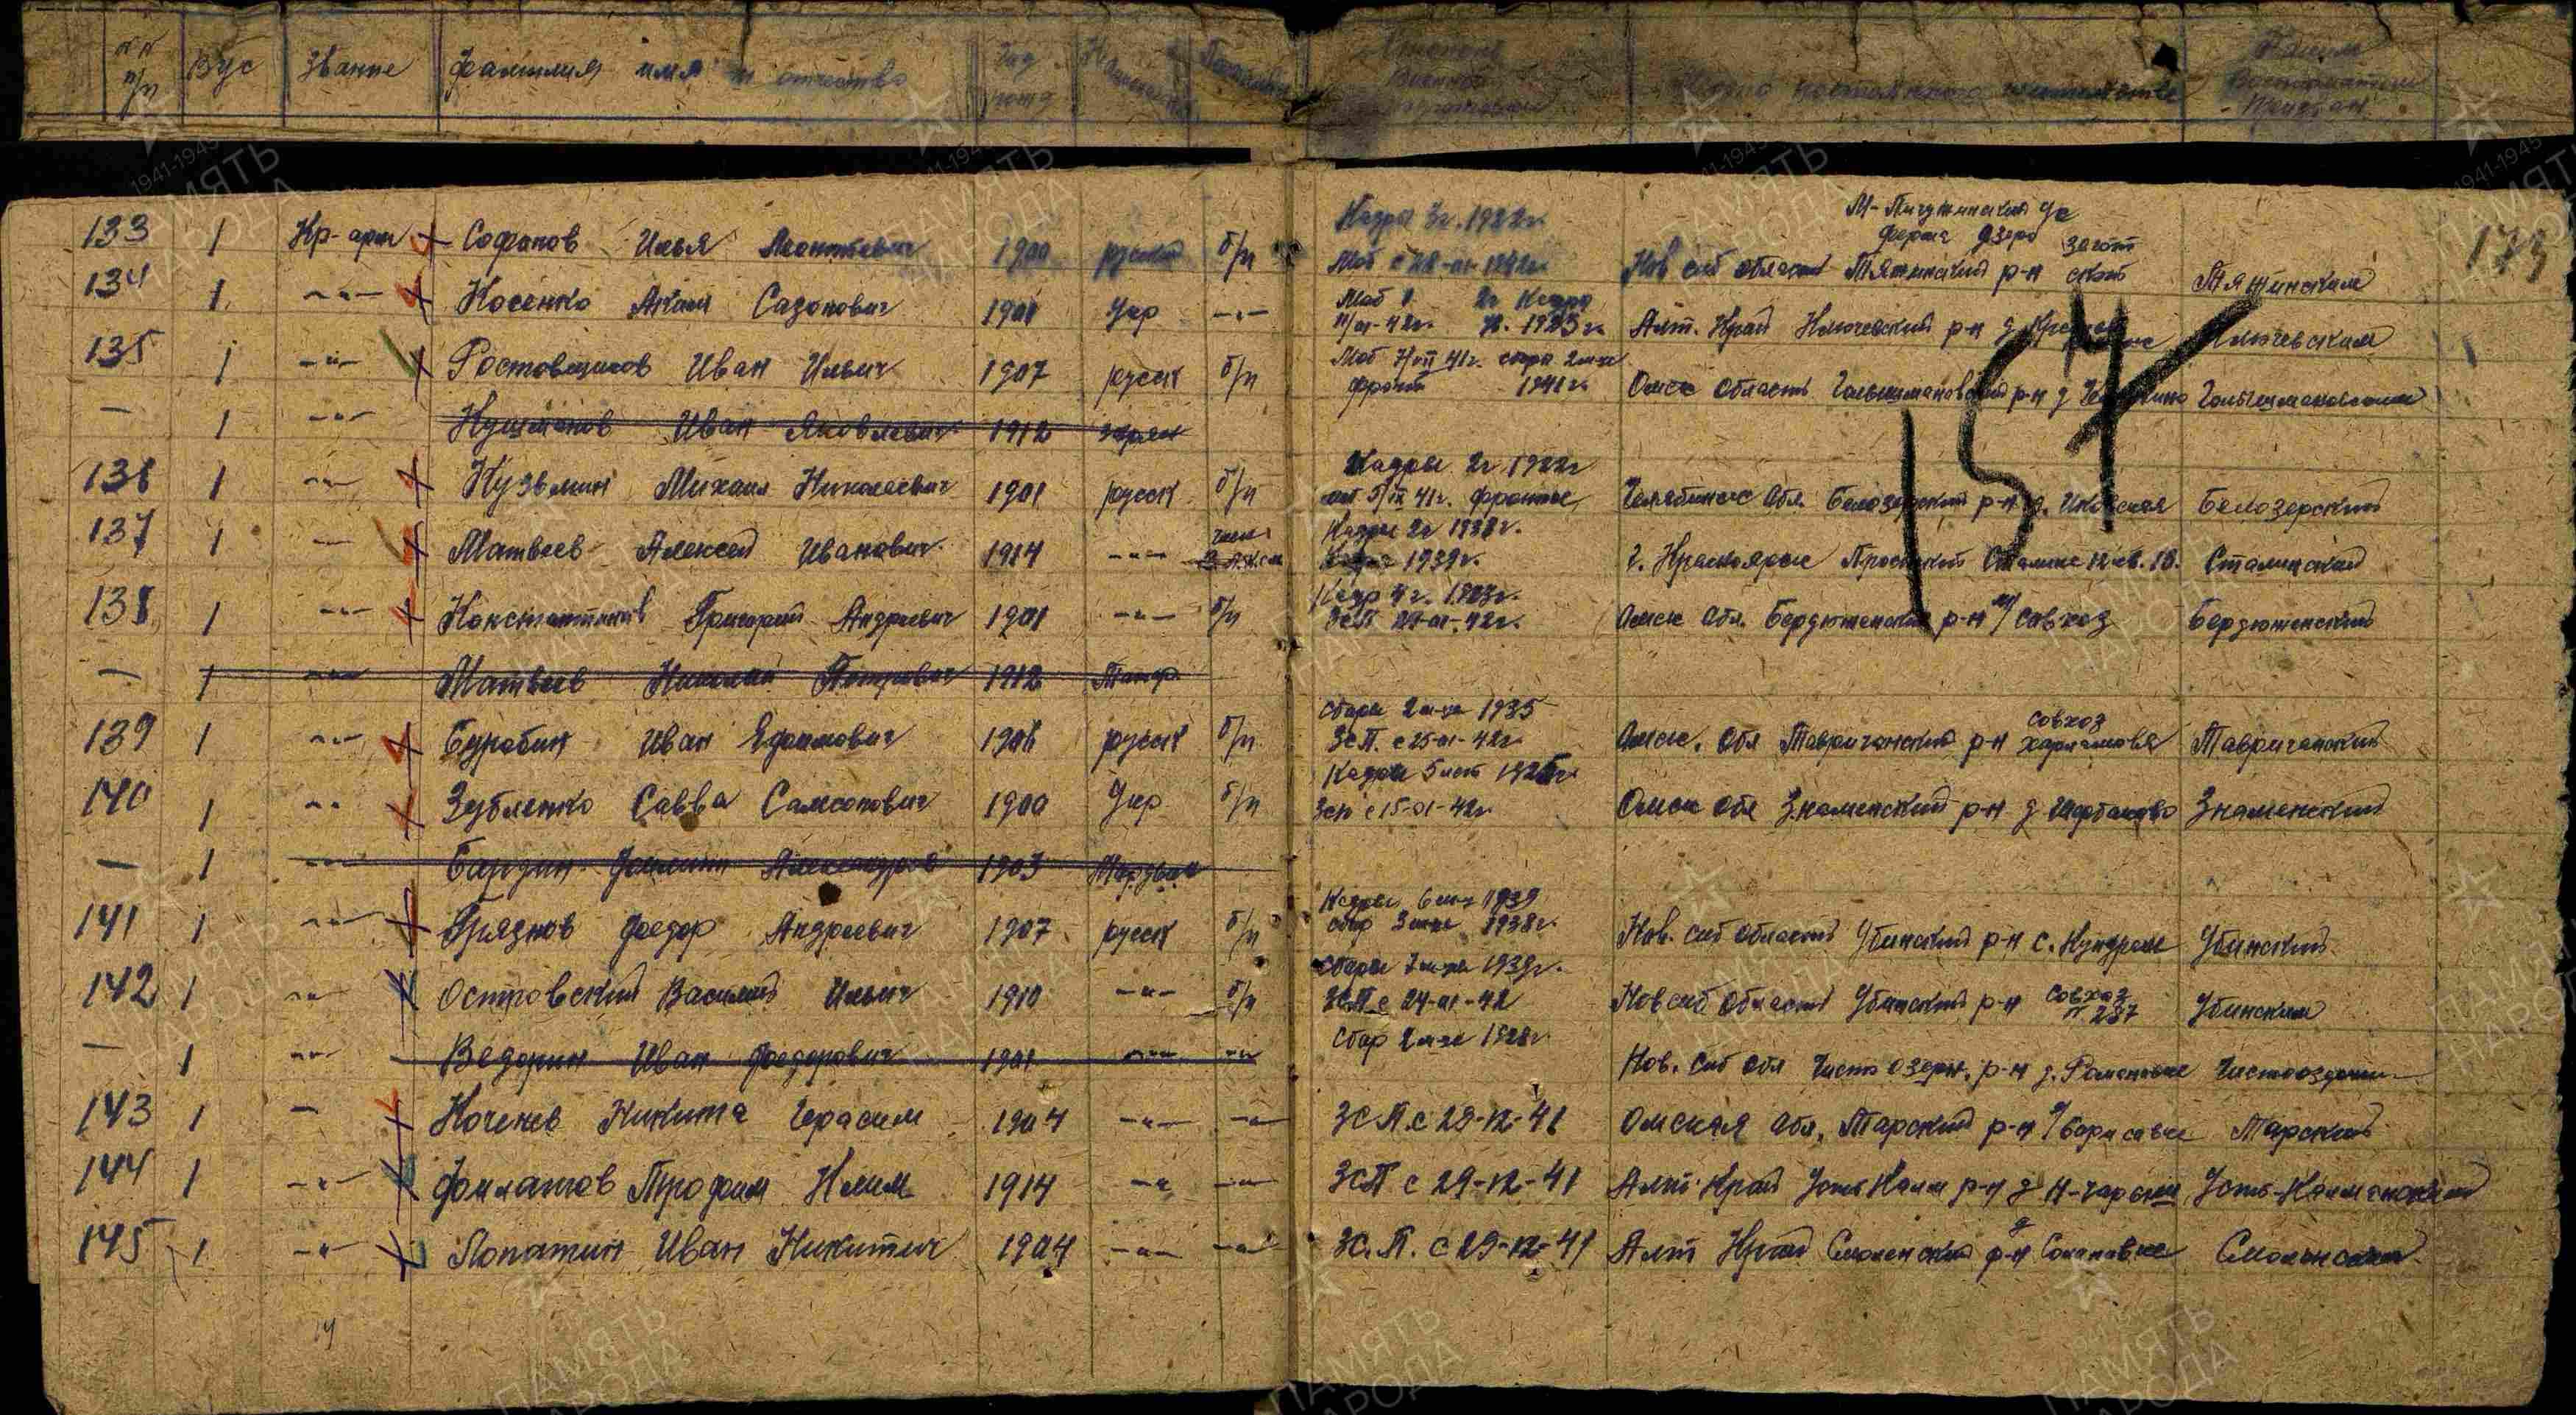 №№ п/п Вус Звание Фамилия имя и отчество Год рожд Место постоянного жительства
133 1 Кр-арм Софонов Илья Леонтьевич 1900 русский б/п Кадры 3г. 1922г. Моб с 28-01-1942г. Нов сиб область Тяжинский р-н ферма загот скот Тяжинский
173
134 1 -"- Косенко Аким Сазонович 1901 Укр -"- Моб 2г Кадры 1923г. Алт. Край Ключевский р-н д. Ключевским
135 1 -"- Ростовщиков Иван Ильич 1907 русск б/п Моб 7/VII 41г. сбора 2м-ца фронт 1941г. Омск область Голышмановский р-н д Голышмановским
— 1 -"- Иван Яковлевич 1912
157
136 1 -"- Кузьмин Михаил Николаевич 1901 русск б/п Кадры 2г 1922г 41г. фронте Челябинск обл. Белозерский р-н д. Иковская Белозерский
137 1 — Матвеев Алексей Иванович 1914 -"- член Кадры 2г 1938г. 1939г. г. Красноярск Проспект Сталина 12 кв. 18. Сталинский
138 1 -"- Константинов Григорий Андреевич 1901 -"- б/п Кадр 4г. 1923г. ЗсП 24-01-42г. Омск обл. Бердюженский р-н м/совхоз Бердюженский
— 1 -"- Матвеев Николай Петрович 1912 Татар
139 1 -"- Бурабин Иван Ефимович 1906 русск б/п Сборы 2м-ца 1935 ЗсП. с 25-01-42г. Омск. обл Тавричанский р-н совхоз Харламова Тавричанский
140 1 -"- Зубленко Савва Самсонович 1900 Укр б/п Кадры 5 лет 1925г. Зсп с 15-01-42г. Омск обл Знаменский р-н д Шербаково Знаменский
— 1 -"- Филипп Александров 1903 Мордвин
141 1 -"- Грязнов Федор Андреевич 1907 русск б/п Кадры 6м-ц 1939 сбор 3м-ца 1938г. Нов. сиб область Убинский р-н с. Кундран Убинский
142 1 -"- Островский Василий Ильич 1910 -"- б/п Сборы 1939г. ЗсП с 24-01-42 Нов сиб область Убинский р-н совхоз № 237 Убинским
— 1 -"- Ведорин Иван Федорович 1901 -"- -"- Сбор 2м-ца 1928г. Нов. Сиб обл Чисто озерн. р-н д. Романовке Чистоозерным
143 1 — Коченев Никита Герасим 1904 -"- -"- ЗСП с 29-12-41 Омская обл. Тарский р-н д/Борисовке Тарский
144 1 -"- Филатов Трофим Клим 1914 -"- -"- ЗСП с 29-12-41 Алт Край Усть Калм р-н д Н-Чарыш Усть-Калманский
145 1 -"- Лопатин Иван Никитич 1904 -"- -"- ЗС.П. с 29-12-41 Алт Край Смоленский р-н д Солоновке Смоленским